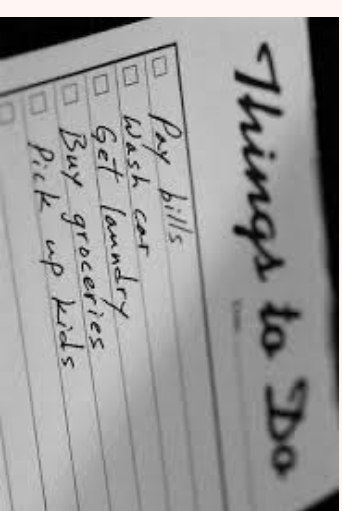 Things to Do
Pay bills
Wash car
Get laundry
Buy groceries
Pick up kids